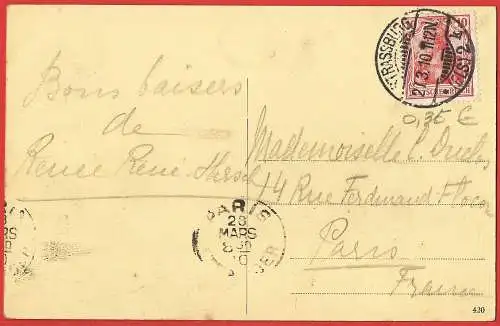 Bons baisers
de
Renée René Hirsch
STRASSBURG
2/3.10.11-12N.
10
0,35 €
Mademoiselle L.
14 Rue Ferdinand
Paris
France
PARIS
28
MARS
8 30
10
420